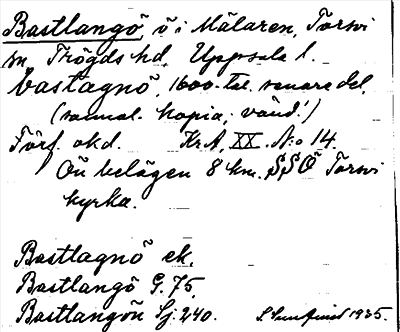 Bastlangö ö i Mälaren, Torsvi
sn, Trögds hd, Uppsala l.
bastagnö, 1600-tal. senare del.
(samml. kopia; vänd!)
Förf. okd. KrA, XX. No 14.
Ön belägen 8 km. SSÖ Torsvi
kyrka.
Bastlagnö ek.
Bastlangö G. 75.
Bastlangön Sj. 240. 1935.